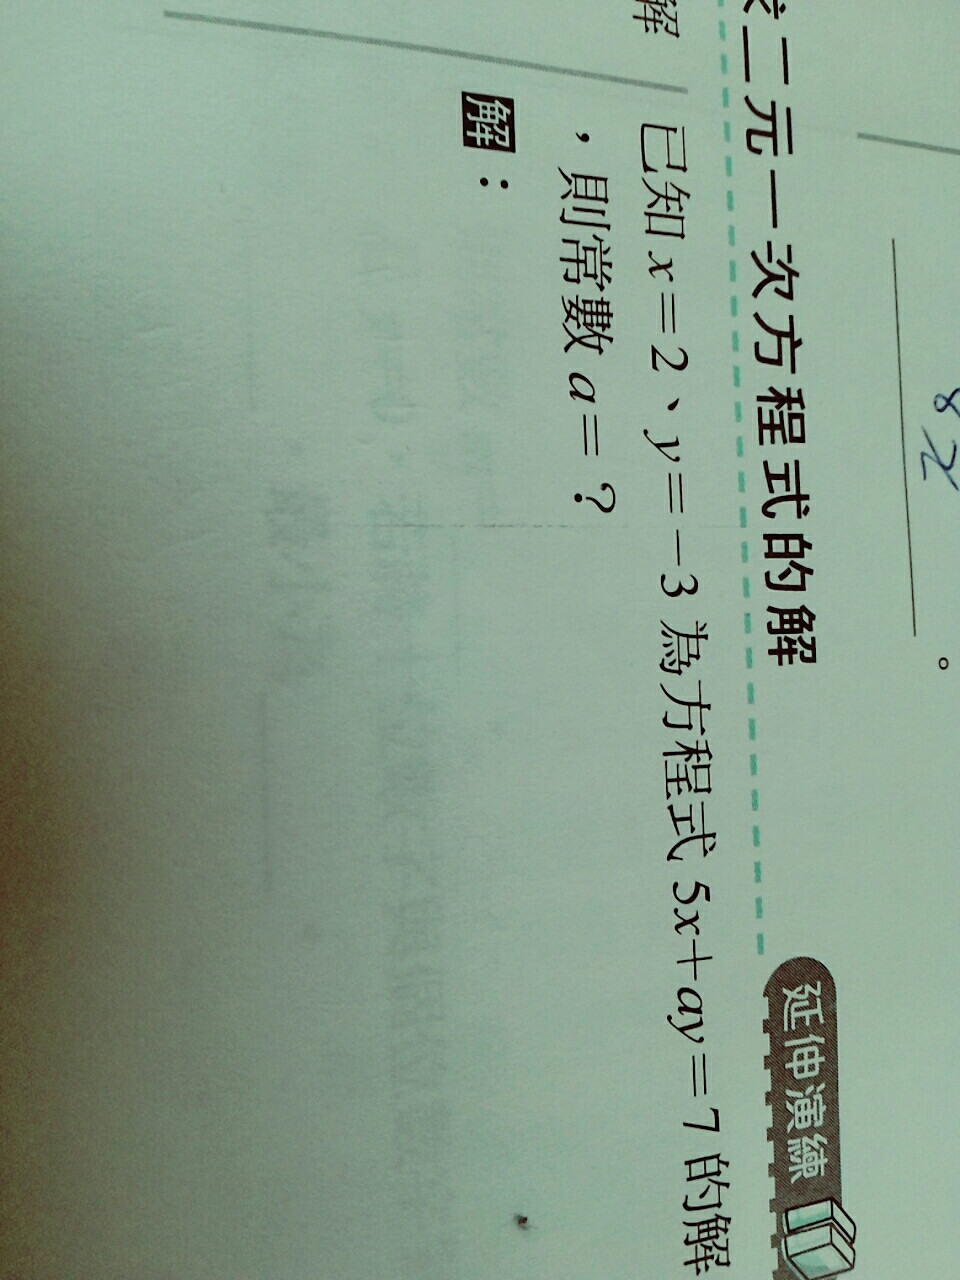 8x
。
二元一次方程式的解
延伸演練
解
已知 x=2、y=-3 為方程式 5x+ay=7 的解
，則常數 a=？
解：